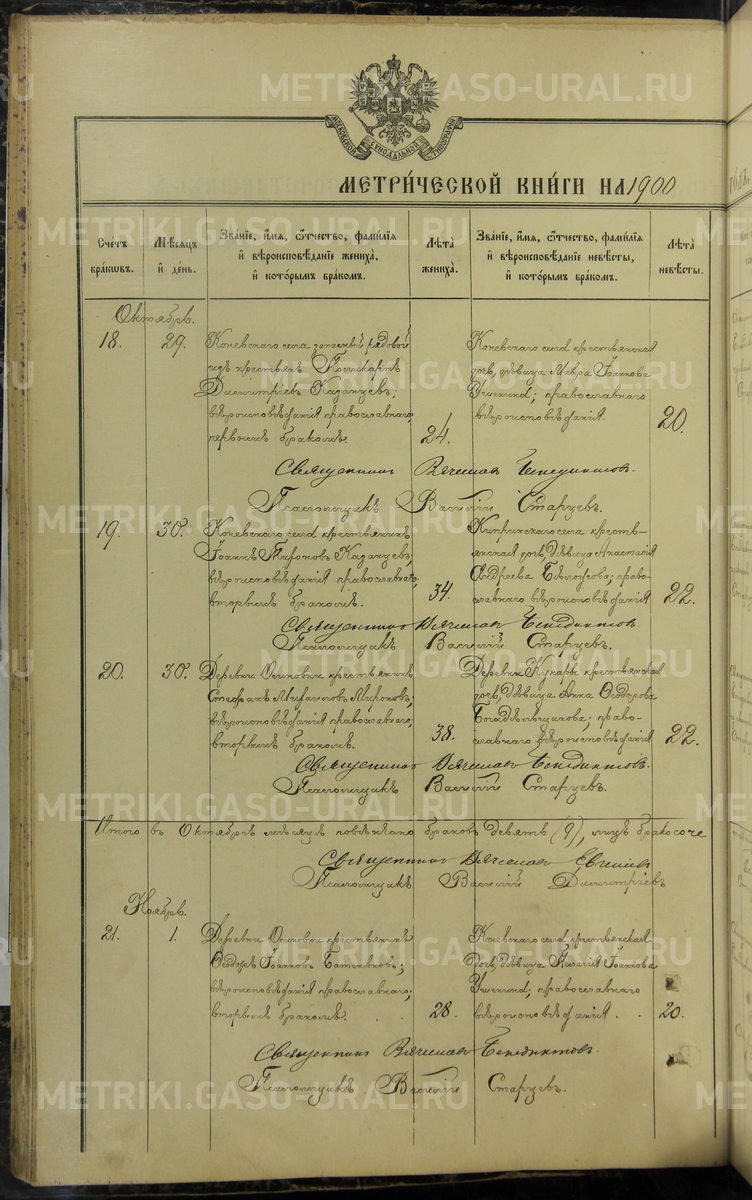 МОСКОВСКОЙ СѴНОДАЛЬНОЙ ТИПОГРАФІИ
МЕТРИ́ЧЕСКОЙ КНИ́ГИ НА 1900
Счетъ бра́кωвъ.
Мѣсяцъ и҆ де́нь.
Зва́нїе, и҆́мя, ѻ҆́тчество, фами́лїя и҆ вѣроисповѣ́данїе жениха̀, и҆ кото́рымъ бра́комъ.
Лѣ́та жениха̀.
Зва́нїе, и҆́мя, ѻ҆́тчество, фами́лїя и҆ вѣроисповѣ́данїе невѣ́сты, и҆ кото́рымъ бра́комъ.
Лѣ́та невѣ́сты.
Октябрь.
18.
29.
Коневскаго села запасный рядовой
изъ крестьянъ Поликарпъ
Димитріевъ Казанцевъ;
вѣроисповѣданія православнаго;
первымъ бракомъ.
24.
Коневскаго села крестьянская
дочь, дѣвица Мавра Іоаннова
православнаго
вѣроисповѣданія.
20.
Священникъ Вячеславъ Бенедиктовъ.
Псаломщикъ Василій Старцевъ.
19.
30.
Коневскаго села крестьянинъ
Іоаннъ Казанцевъ;
вѣроисповѣданія православнаго;
вторымъ бракомъ.
34.
села кресть-
янская дочь, дѣвица Анастасія
Андреева Бѣлоусова; право-
славнаго вѣроисповѣданія
22.
Священникъ Вячеславъ Бенедиктовъ
Псаломщикъ Василій Старцевъ.
20.
30.
Деревни Осиновки крестьянинъ
Стефанъ Мироновъ;
вѣроисповѣданія православнаго;
вторымъ бракомъ.
38.
Деревни крестьянская
дочь, дѣвица Анна Ѳеодорова
Богадѣльщикова; право-
славнаго вѣроисповѣданія
22.
Священникъ Вячеславъ Бенедиктовъ.
Псаломщикъ Василій Старцевъ.
Итого въ Октябрѣ мѣсяцѣ повѣнчано браковъ девять (9), лицъ бракосоче
Священникъ Вячеславъ
Псаломщикъ Василій Димитріевъ
Ноябрь.
21.
1.
Деревни Осиновки крестьянинъ
Ѳеодоръ Іоанновъ
вѣроисповѣданія православнаго;
вторымъ бракомъ.
28.
Коневскаго села крестьянская
дочь, дѣвица Іоаннова
православнаго
вѣроисповѣданія.
20.
Священникъ Вячеславъ Бенедиктовъ.
Псаломщикъ Василій Старцевъ.
METRIKI.GASO-URAL.RU